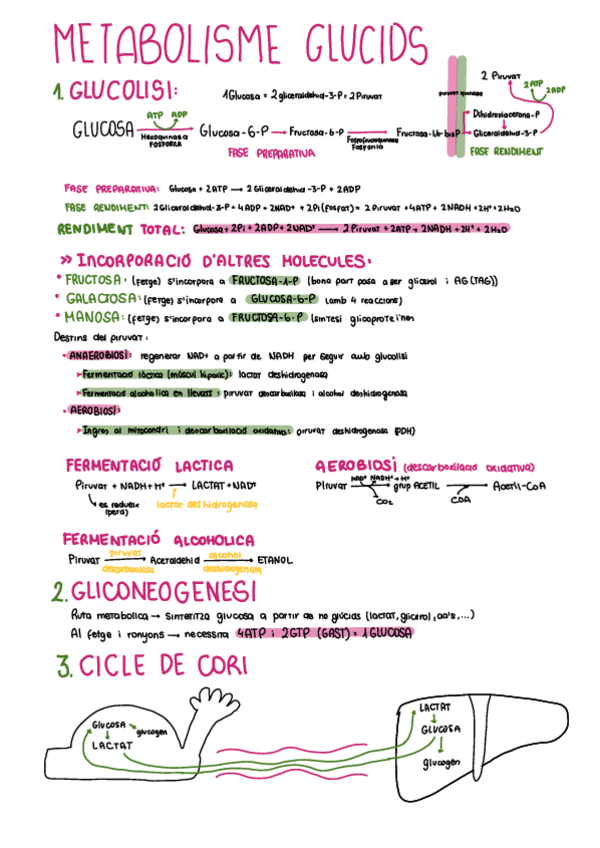 METABOLISME GLUCIDS
1. GLUCOLISI:
1 Glucosa = 2 gliceraldehid-3-P = 2 Piruvat
2 Piruvat
2ATP
2ADP
piruvat quinasa
ATP ADP
GLUCOSA Hexoquinasa FOSFORILA Glucosa-6-P → Fructosa-6-P Fosfofructoquinasa Fosforila Fructosa-1,6-bisP
Dihidroxiacetona-P
Gliceraldehid-3-P
FASE PREPARATIVA
FASE RENDIMENT
FASE PREPARATIVA: Glucosa + 2ATP → 2 Gliceraldehid-3-P + 2ADP
FASE RENDIMENT: 2Gliceraldehid-3-P + 4ADP + 2NAD+ + 2Pi (fosfat) = 2 Piruvat + 4ATP + 2NADH + 2H+ + 2H2O
RENDIMENT TOTAL: Glucosa + 2Pi + 2ADP + 2NAD+ → 2 Piruvat + 2ATP + 2NADH + 2H+ + 2H2O
» INCORPORACIÓ D'ALTRES MOLECULES:
• FRUCTOSA: (fetge) s'incorpora a FRUCTOSA-1-P (bona part passa a ser glicerol i AG(TAG))
• GALACTOSA: (fetge) s'incorpora a GLUCOSA-6-P (amb 4 reaccions)
• MANOSA: (fetge) s'incorpora a FRUCTOSA-6-P (síntesi glicoproteïnes
Destins del piruvat:
• ANAEROBIOSI: regenerar NAD+ a partir de NADH per seguir amb glucolisi
➤ Fermentació làctica (múscul hipòxic): lactat deshidrogenasa
➤ Fermentació alcoholica en llevats: piruvat descarboxilasa i alcohol deshidrogenasa
• AEROBIOSI:
➤ Ingres al mitocondri i descarboxilació oxidativa: piruvat deshidrogenasa (PDH)
FERMENTACIÓ LACTICA
Piruvat + NADH + H+ → LACTAT + NAD+
es redueix
lactat deshidrogenasa
AEROBIOSI (descarboxilació oxidativa)
NAD+ NADH + H+
Piruvat → grup ACETIL → Acetil-CoA
CO2 COA
FERMENTACIÓ ALCOHOLICA
Piruvat piruvat descarboxilasa Acetaldehid alcohol deshidrogenasa ETANOL
2. GLICONEOGENESI
Ruta metabolica → sintetitza glucosa a partir de no glúcids (lactat, glicerol, aa's, ...)
Al fetge i ronyons → necessita 4ATP i 2GTP (GAST) = 1 GLUCOSA
3. CICLE DE CORI
GLUCOSA
glucogen
LACTAT
LACTAT
GLUCOSA
glucogen